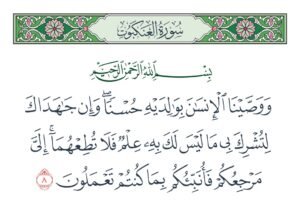 سُورَةُ العَنكَبُوت
بِسْمِ ٱللَّهِ ٱلرَّحْمَٰنِ ٱلرَّحِيمِ
وَوَصَّيْنَا ٱلْإِنسَٰنَ بِوَٰلِدَيْهِ حُسْنًا ۖ وَإِن جَٰهَدَاكَ
لِتُشْرِكَ بِى مَا لَيْسَ لَكَ بِهِۦ عِلْمٌ فَلَا تُطِعْهُمَآ ۚ إِلَىَّ
مَرْجِعُكُمْ فَأُنَبِّئُكُم بِمَا كُنتُمْ تَعْمَلُونَ ٨